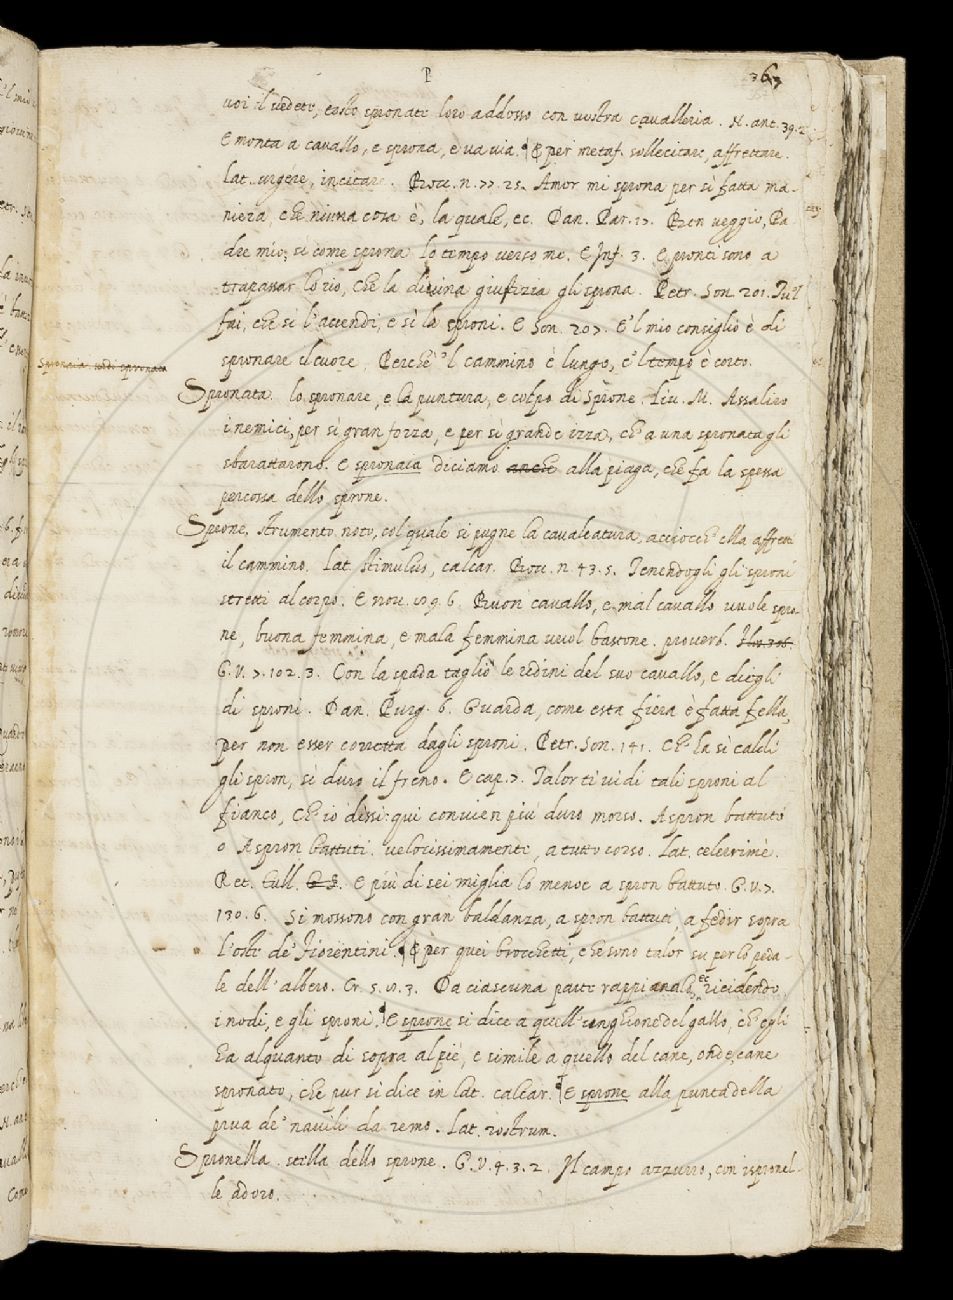 P
363
voi il vedete, tosto spronate loro addosso con vostra cavalleria. N. ant. 39. 2.
E monta a cavallo, e sprona, e va via. ¶ E per metaf. sollecitare, affrettare.
Lat. urgere, incitare. Bocc. n. 77. 25. Amor mi sprona per sì fatta ma-
niera, che niuna cosa è, la quale, ec. Dan. Par. 17. Ben veggio, Pa
dre mio, si come sprona lo tempo verso me. E Inf. 3. E pronti sono a
trapassar lo rio, Che la divina giustizia gli sprona. Petr. Son. 201. Tu 'l
fai, che sì l'accendi, e sì la sproni. E Son. 207. E 'l mio consiglio è di
spronare il cuore, Perchè 'l cammino è lungo, e 'l tempo è corto.
Spronaia vedi spronata
Spronata. lo spronare, e la puntura, e colpo di Sprone. Liv. M. Assaliro
i nemici, per sì gran forza, e per sì grande izza, ch' a una spronata gli
sbarattarono. E spronaia diciamo anche alla piaga, che fa la spessa
percossa dello sprone.
Sprone, strumento noto, col quale si pugne la cavalcatura, acciocch' ella affretti
il cammino. Lat. stimulus, calcar. Bocc. n. 43. 5. Tenendogli gli sproni
stretti al corpo. E nov. 89. 6. Buon cavallo, e mal cavallo vuole spro-
ne, buona femmina, e mala femmina vuol bastone. proverb.
G. V. 7. 102. 3. Con la spada tagliò le redini del suo cavallo, e diegli
di sproni. Dan. Purg. 6. Guarda, come esta fiera è fatta fella,
per non esser corretta dagli sproni. Petr. Son. 141. Ch' la sì caldi
gli spron, sì duro il freno. E cap. 7. Talor ti vidi tali sproni al
fianco, Ch' io dissi: qui convien più duro morso. A spron battuto
o A spron battuti. velocissimamente, a tutto corso. Lat. celerrimè.
Ret. Tull. E più di sei miglia lo menoe a spron battuto. G. V. 7.
130. 6. Si mossono con gran baldanza, a spron battuti, a fedir sopra
l'oste de' Fiorentini. ¶ E per quei brocchetti, che sono talor su per lo peda-
le dell' albero. Cr. 5. 18. 3. Da ciascuna parte rappianalo, ec ricidendo
i nodi, e gli sproni. ¶ E sprone si dice a quell' unghione del gallo, ch' egli
ha alquanto di sopra al piè, e simile a quello del cane, onde, cane
spronato, che pur si dice in lat. calcar. ¶ E sprone alla punta della
prua de' navili da remo. Lat. rostrum.
Spronella. stella dello sprone. G. V. 4. 3. 2. Il campo azzurro, con ispronel-
le ad oro.